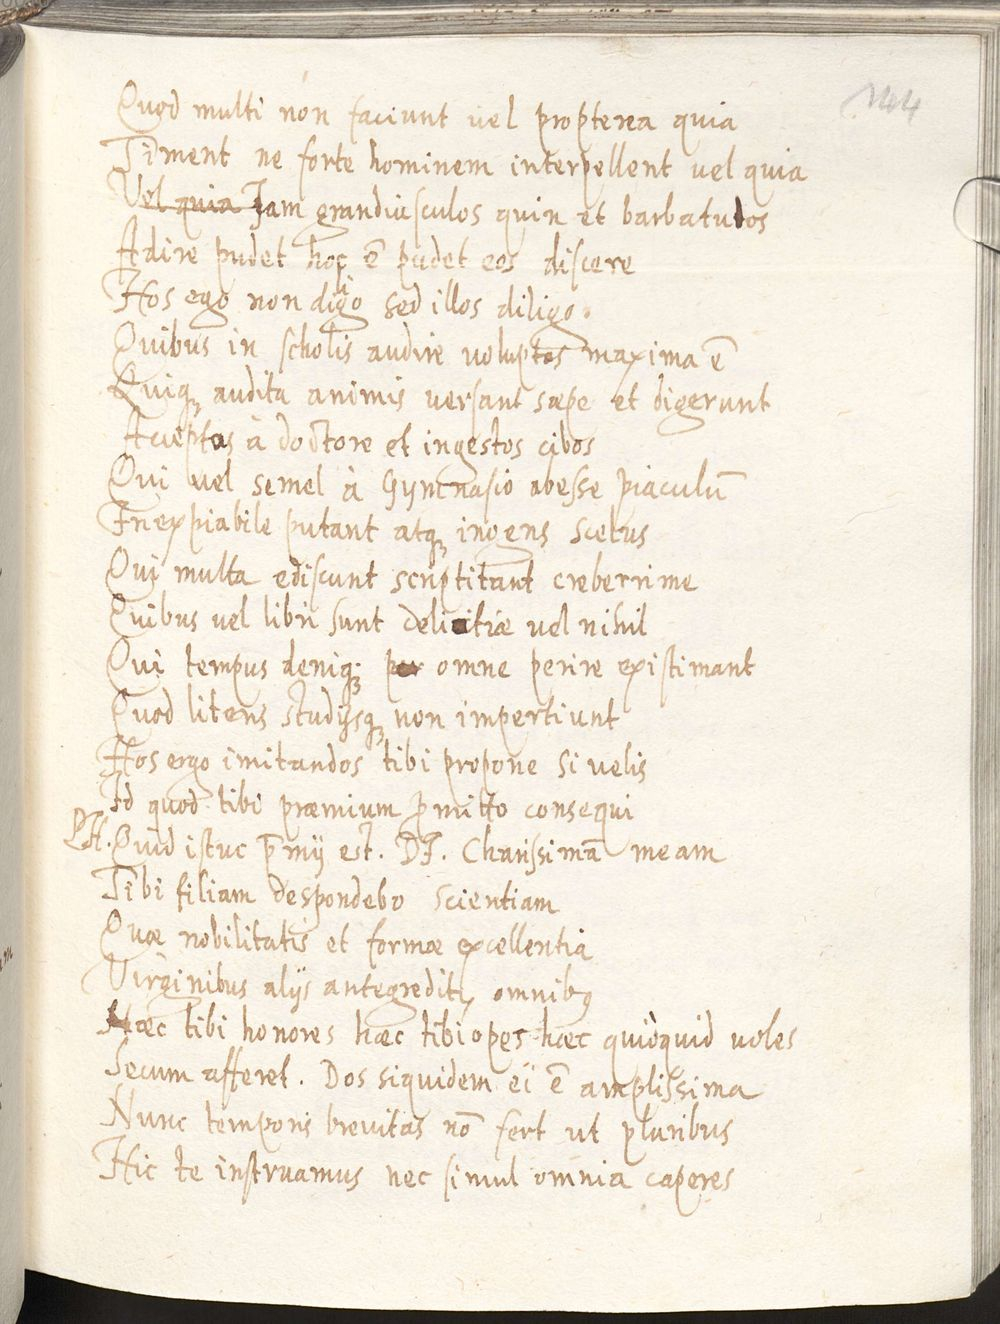 144
Quod multi non faciunt vel propterea quia
Timent ne forte hominem interpellent vel quia
Vel quia Jam grandiusculos quin et barbatulos
Adire pudet hoc ē pudet eos discere
Hos ego non diligo sed illos diligo.
Quibus in scholis audire voluptas maxima ē
Quiq; audita animis versant sæpe et digerunt
Acceptos à doctore et ingestos cibos
Qui vel semel à Gymnasio abesse piaculū
Inexpiabile putant atq; ingens scelus
Qui multa ediscunt scriptitant creberrime
Quibus vel libri sunt delitiæ vel nihil
Qui tempus deniq; omne perire existimant
Quod literis studijsq; non impertiunt
Hos ergo imitandos tibi propone si velis
Id quod tibi præmium ꝓmitto consequi
PH. Quid istuc p̄mij est. DI. Charissimā meam
Tibi filiam despondebo scientiam
Quæ nobilitatis et formæ excellentia
Virginibus alijs antegredit᷒ omnibꝫ
Hæc tibi honores hæc tibi opes hæc quidquid voles
Secum afferet. Dos siquidem ei ē amplissima
Nunc temporis brevitas nō fert ut pluribus
Hic te instruamus nec simul omnia caperes